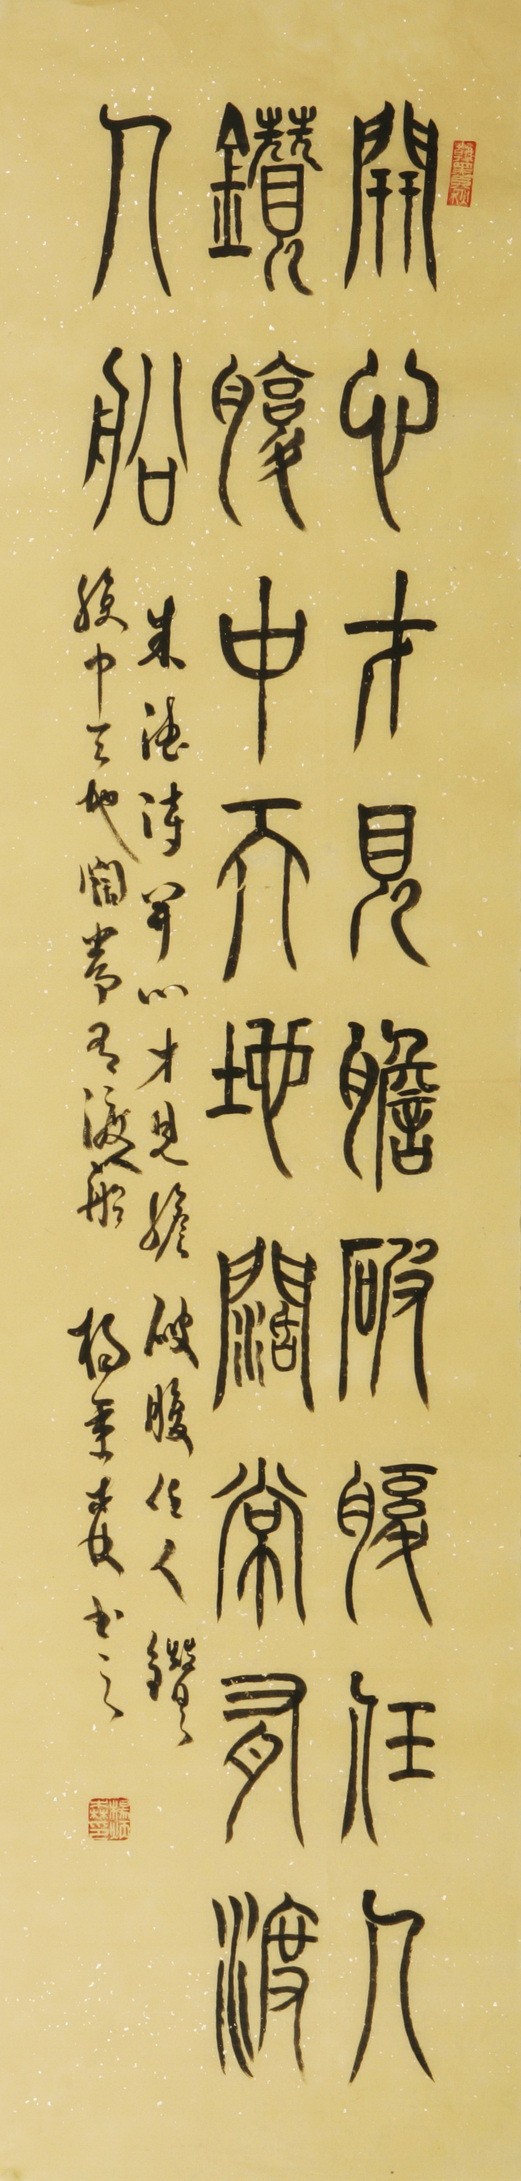 開心才見膽破腹任人
鑽腹中天地闊常有渡
人船
朱德詩開心才見膽破腹任人鑽
腹中天地闊常有渡人船 楊書之